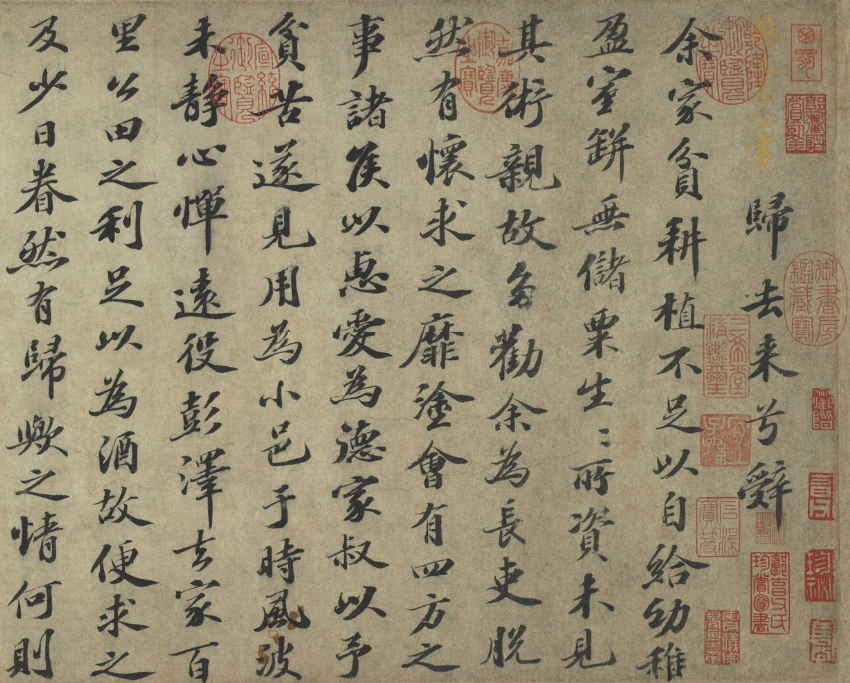 歸去来兮辭
余家貧耕植不足以自給幼稚
盈室缾無儲粟生〻所資未見
其術親故多勸余為長吏脫
然有懷求之靡塗會有四方之
事諸侯以惠愛為德家叔以予
貧苦遂見用為小邑于時風波
未靜心憚遠役彭澤去家百
里公田之利足以為酒故便求之
及少日眷然有歸歟之情何則